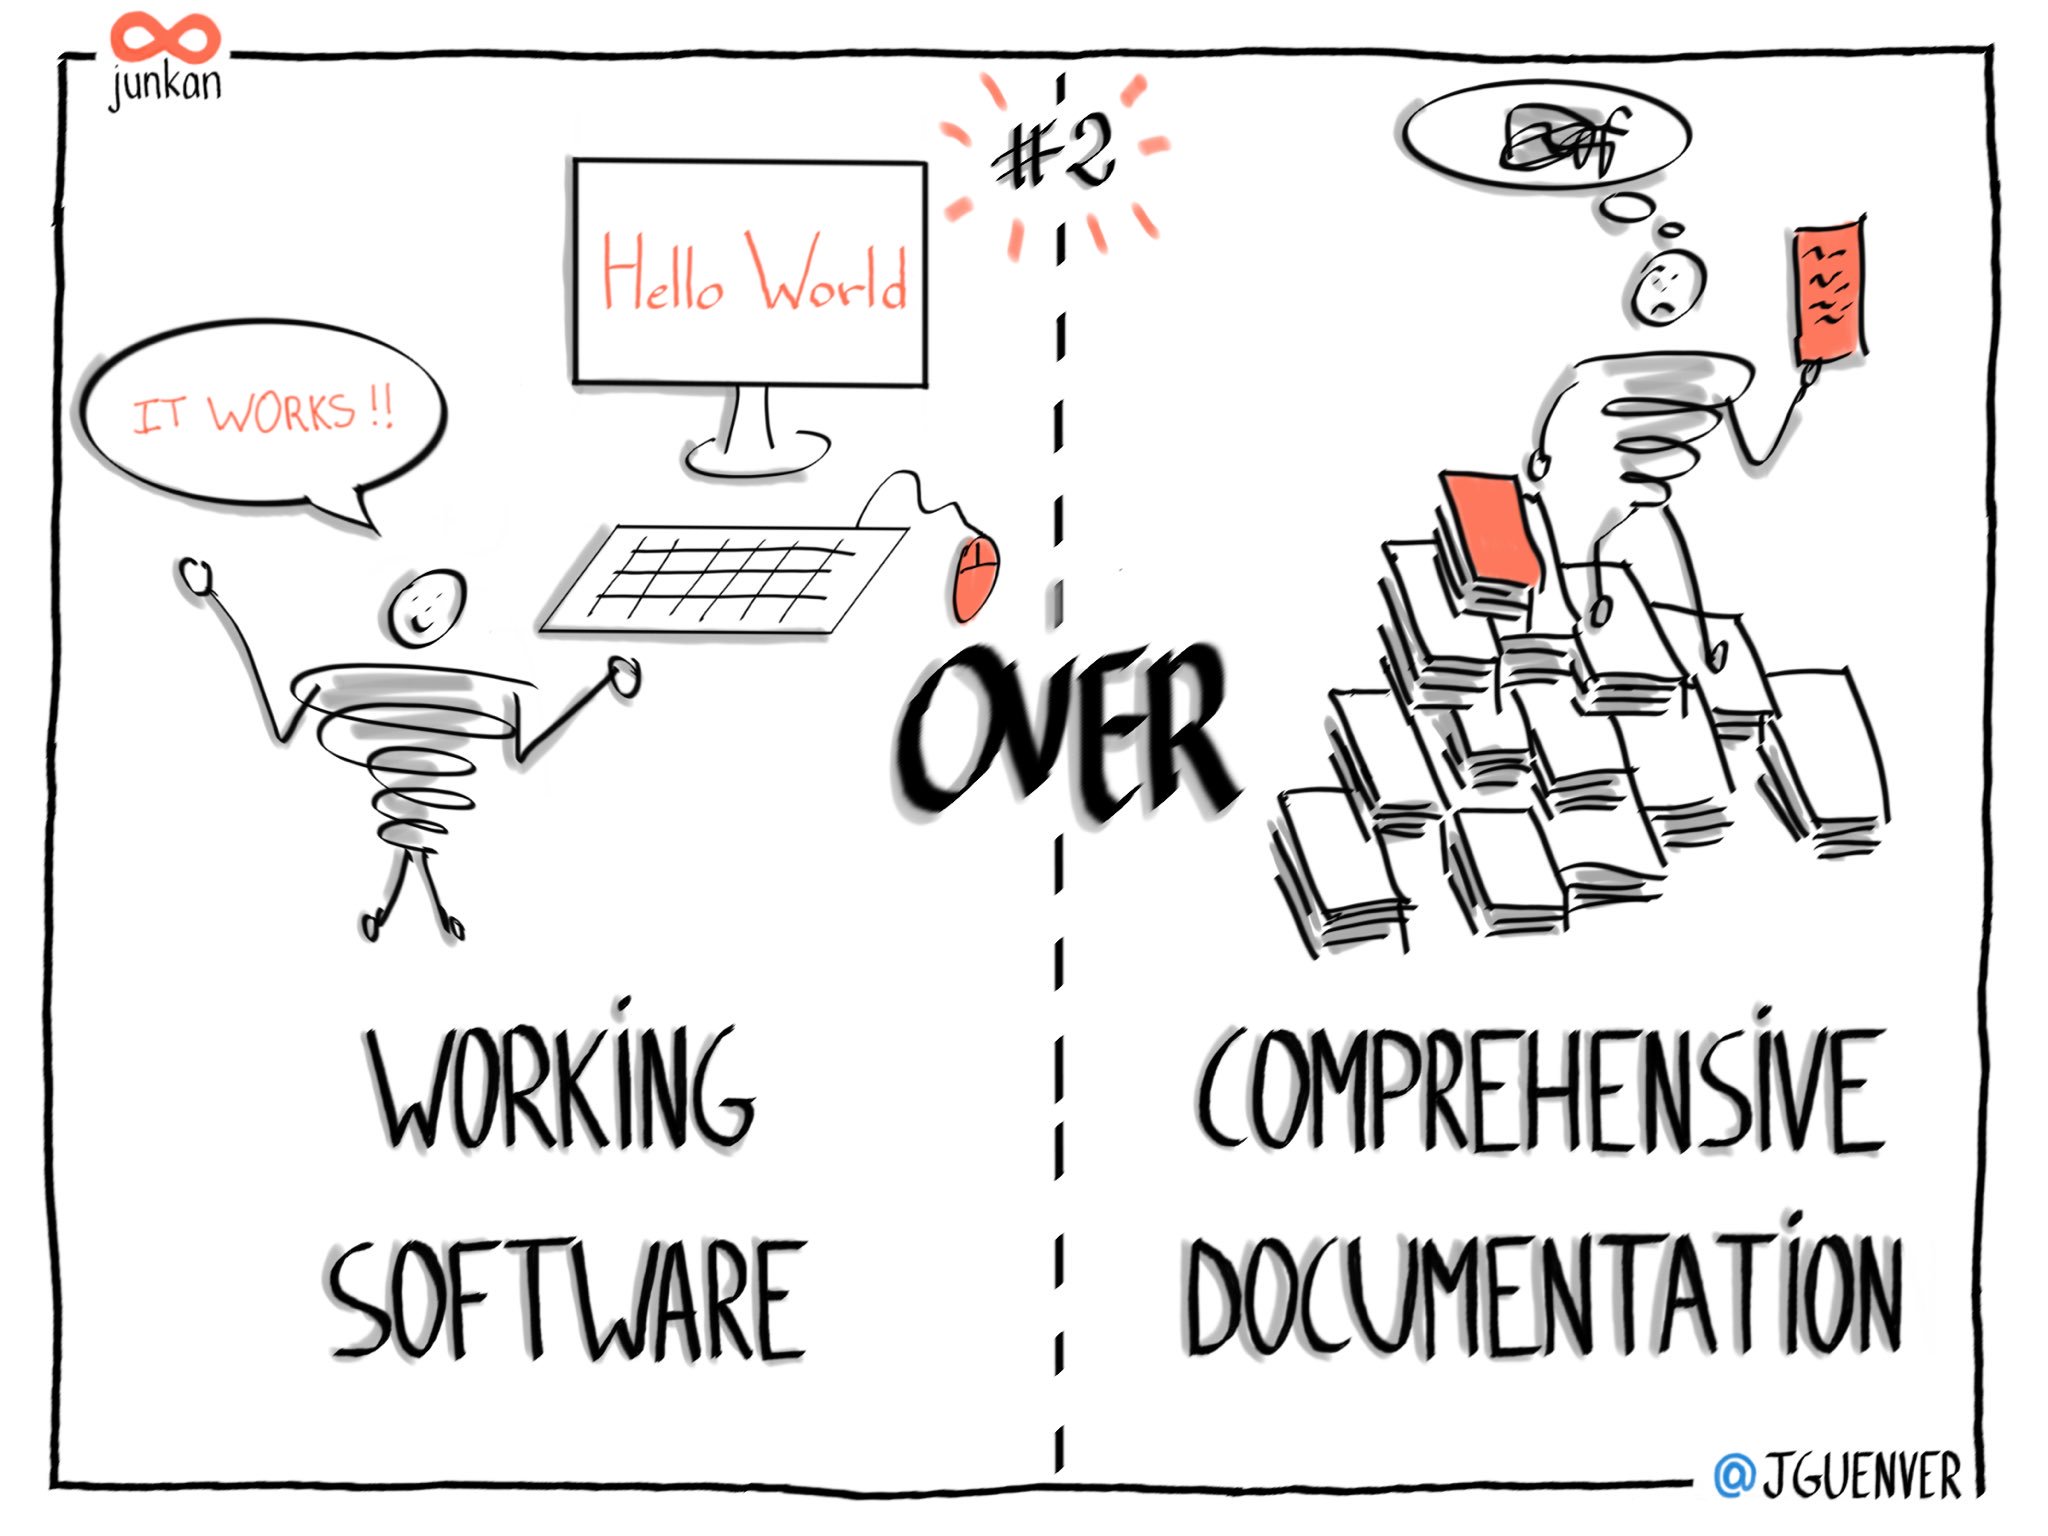 junkan
#2
Hello World
IT WORKS!!
OVER
WORKING
SOFTWARE
COMPREHENSIVE
DOCUMENTATION
@JGUENVER